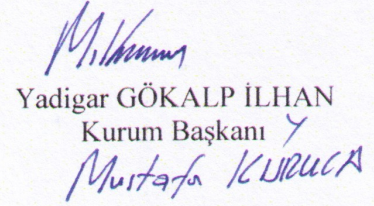 Yadigar GÖKALP İLHAN
Kurum Başkanı Y
Mustafa KURUCA